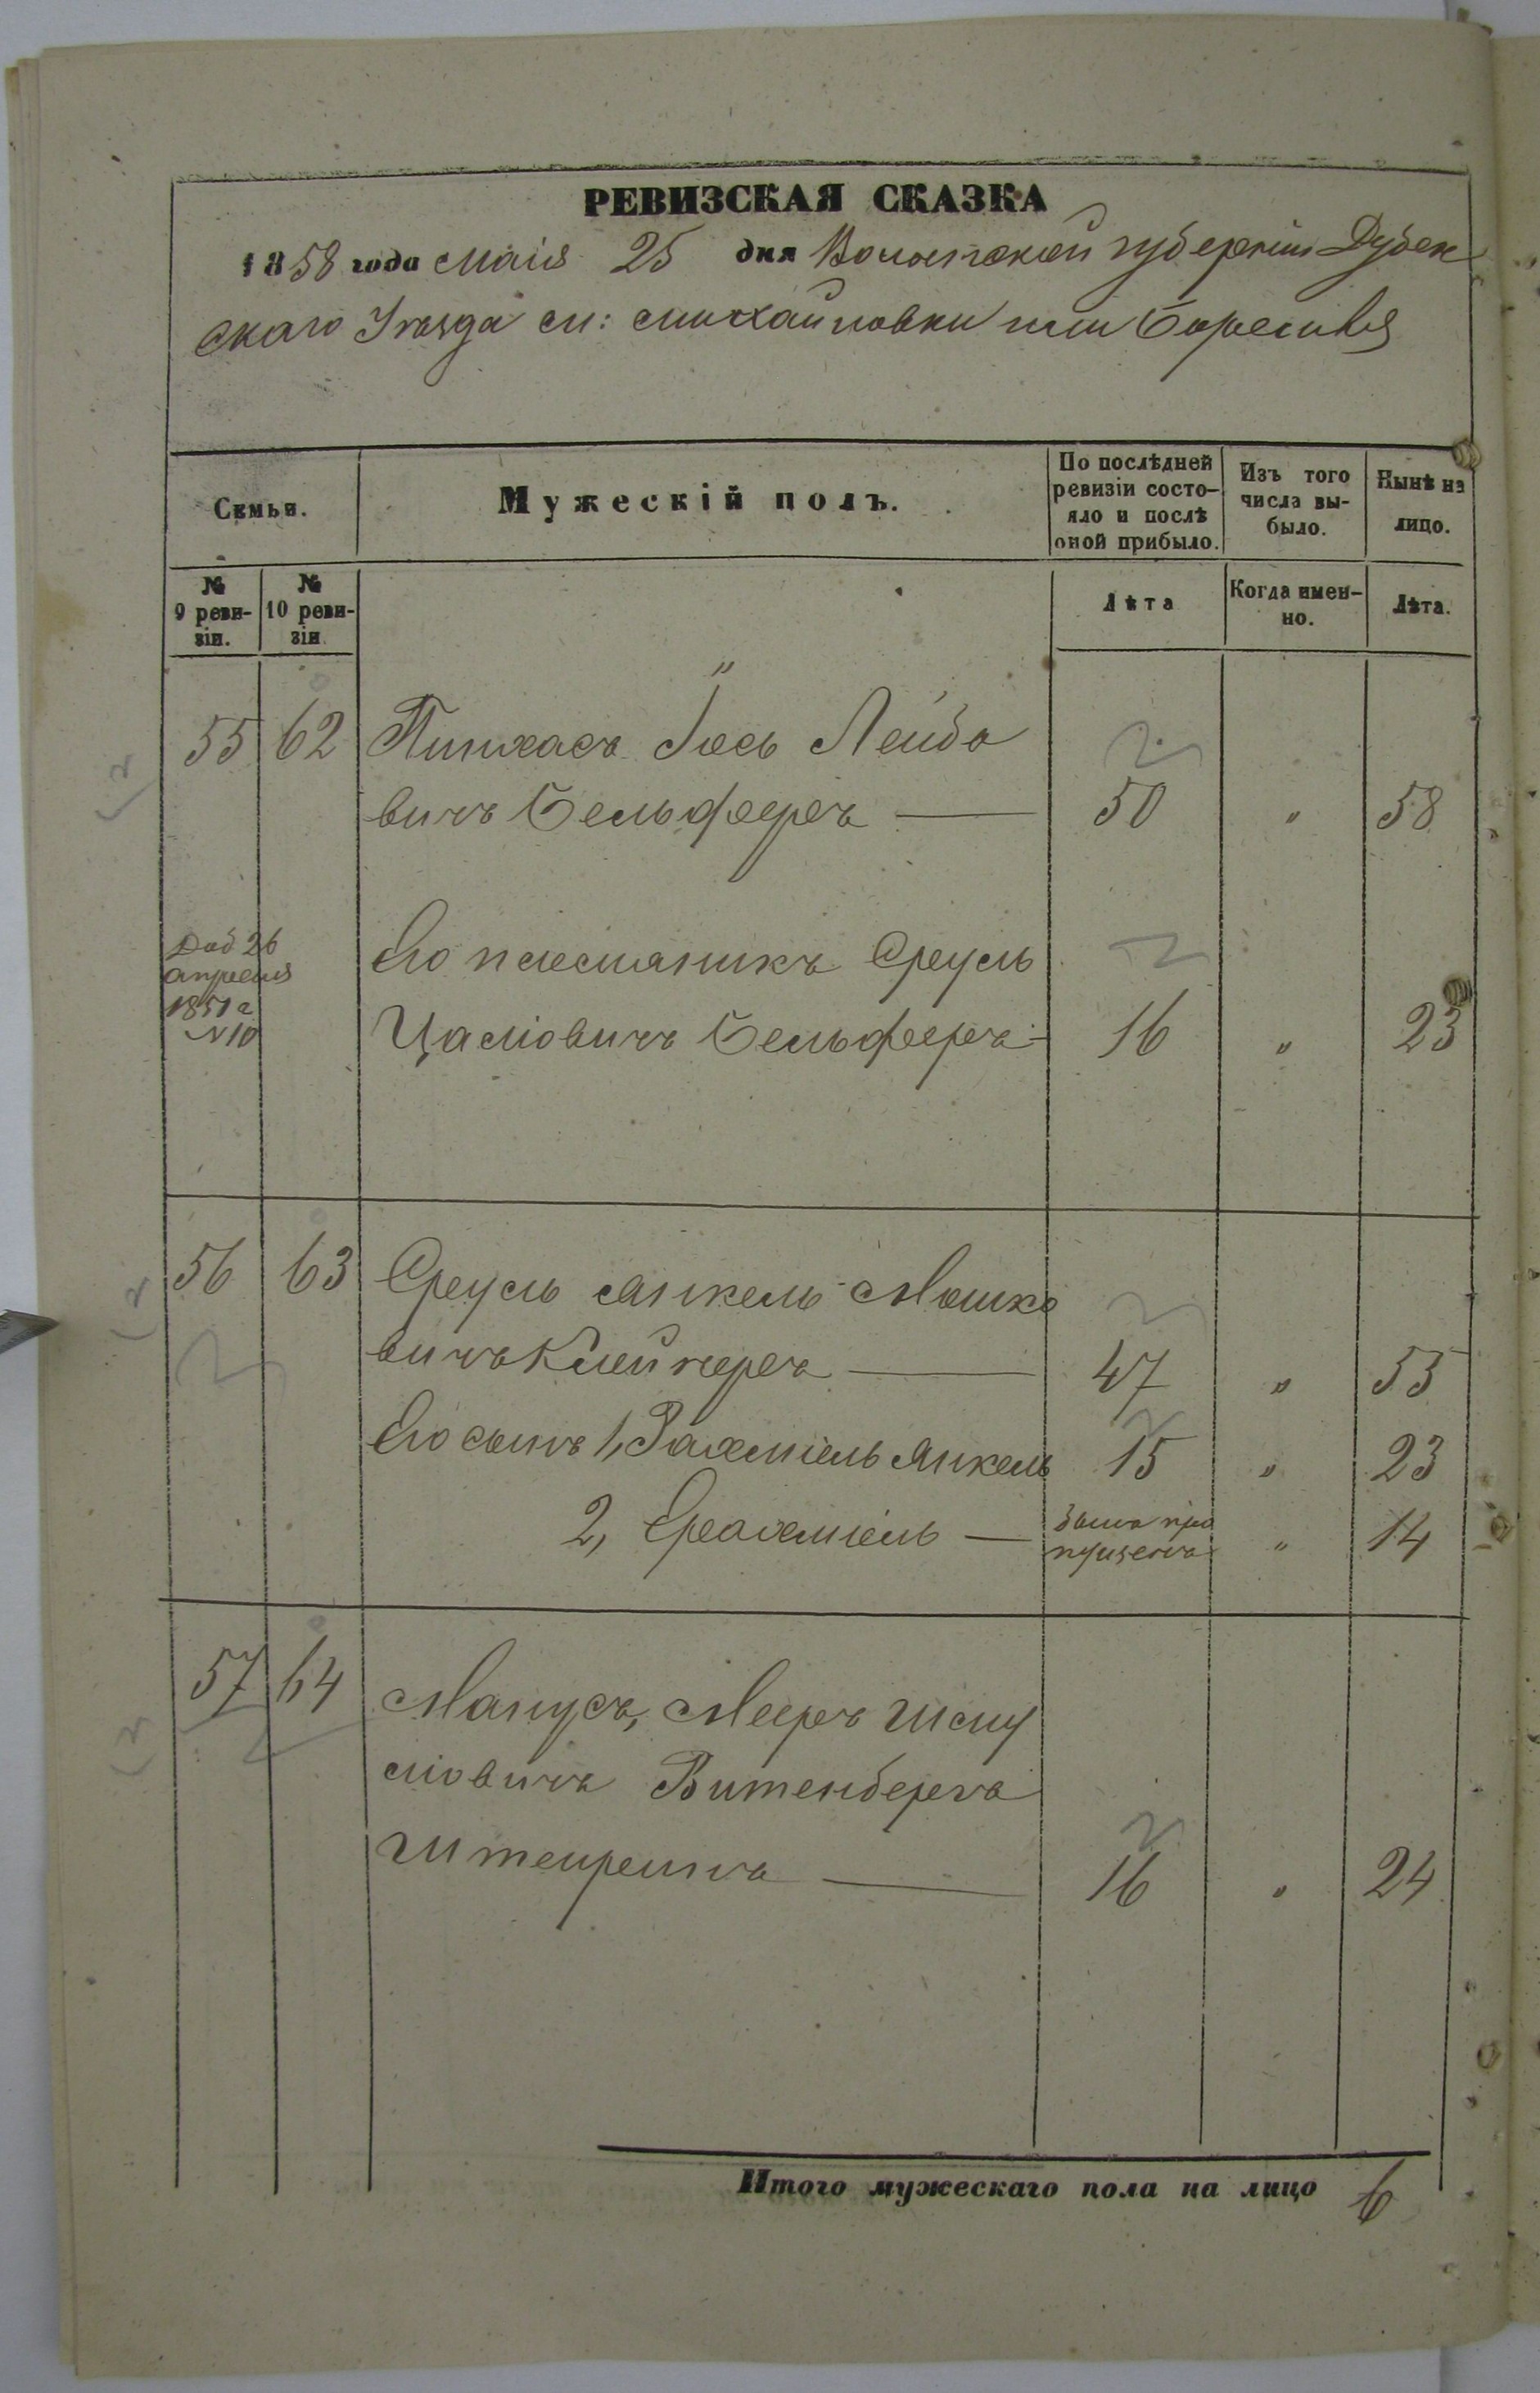 РЕВИЗСКАЯ СКАЗКА
1858 года Маія 25 дня Волынской губерніи Дубен
скаго Уѣзда м: Михайловки или Берестечка
Семьи.
Мужескій полъ.
По послѣдней ревизіи состо-
яло и послѣ оной прибыло.
Изъ того числа вы-
было.
Нынѣ на лицо.
№ 9 реви-
зіи.
№ 10 реви-
зіи
Лѣта
Когда имен-
но.
Лѣта.
55 62 Пинхасъ Іось Лейбо
вичъ Бельфееръ — 50 " 58
Доб 26
апреля
1851 г
№10
Его племяникъ Сруль
Цалювичъ Бельфееръ - 16 " 23
56 63 Сруль Янкель Мошко
вичъ Клейнеръ — 47 " 55
Его сынъ 1, Рахміель Янкель 15 " 23
2, Ерахміель — былъ про
пущенъ " 14
57 64 Манусъ, Мееръ Шму
люовичъ Витенбергъ
— 16 " 24
Итого мужескаго пола на лицо 6